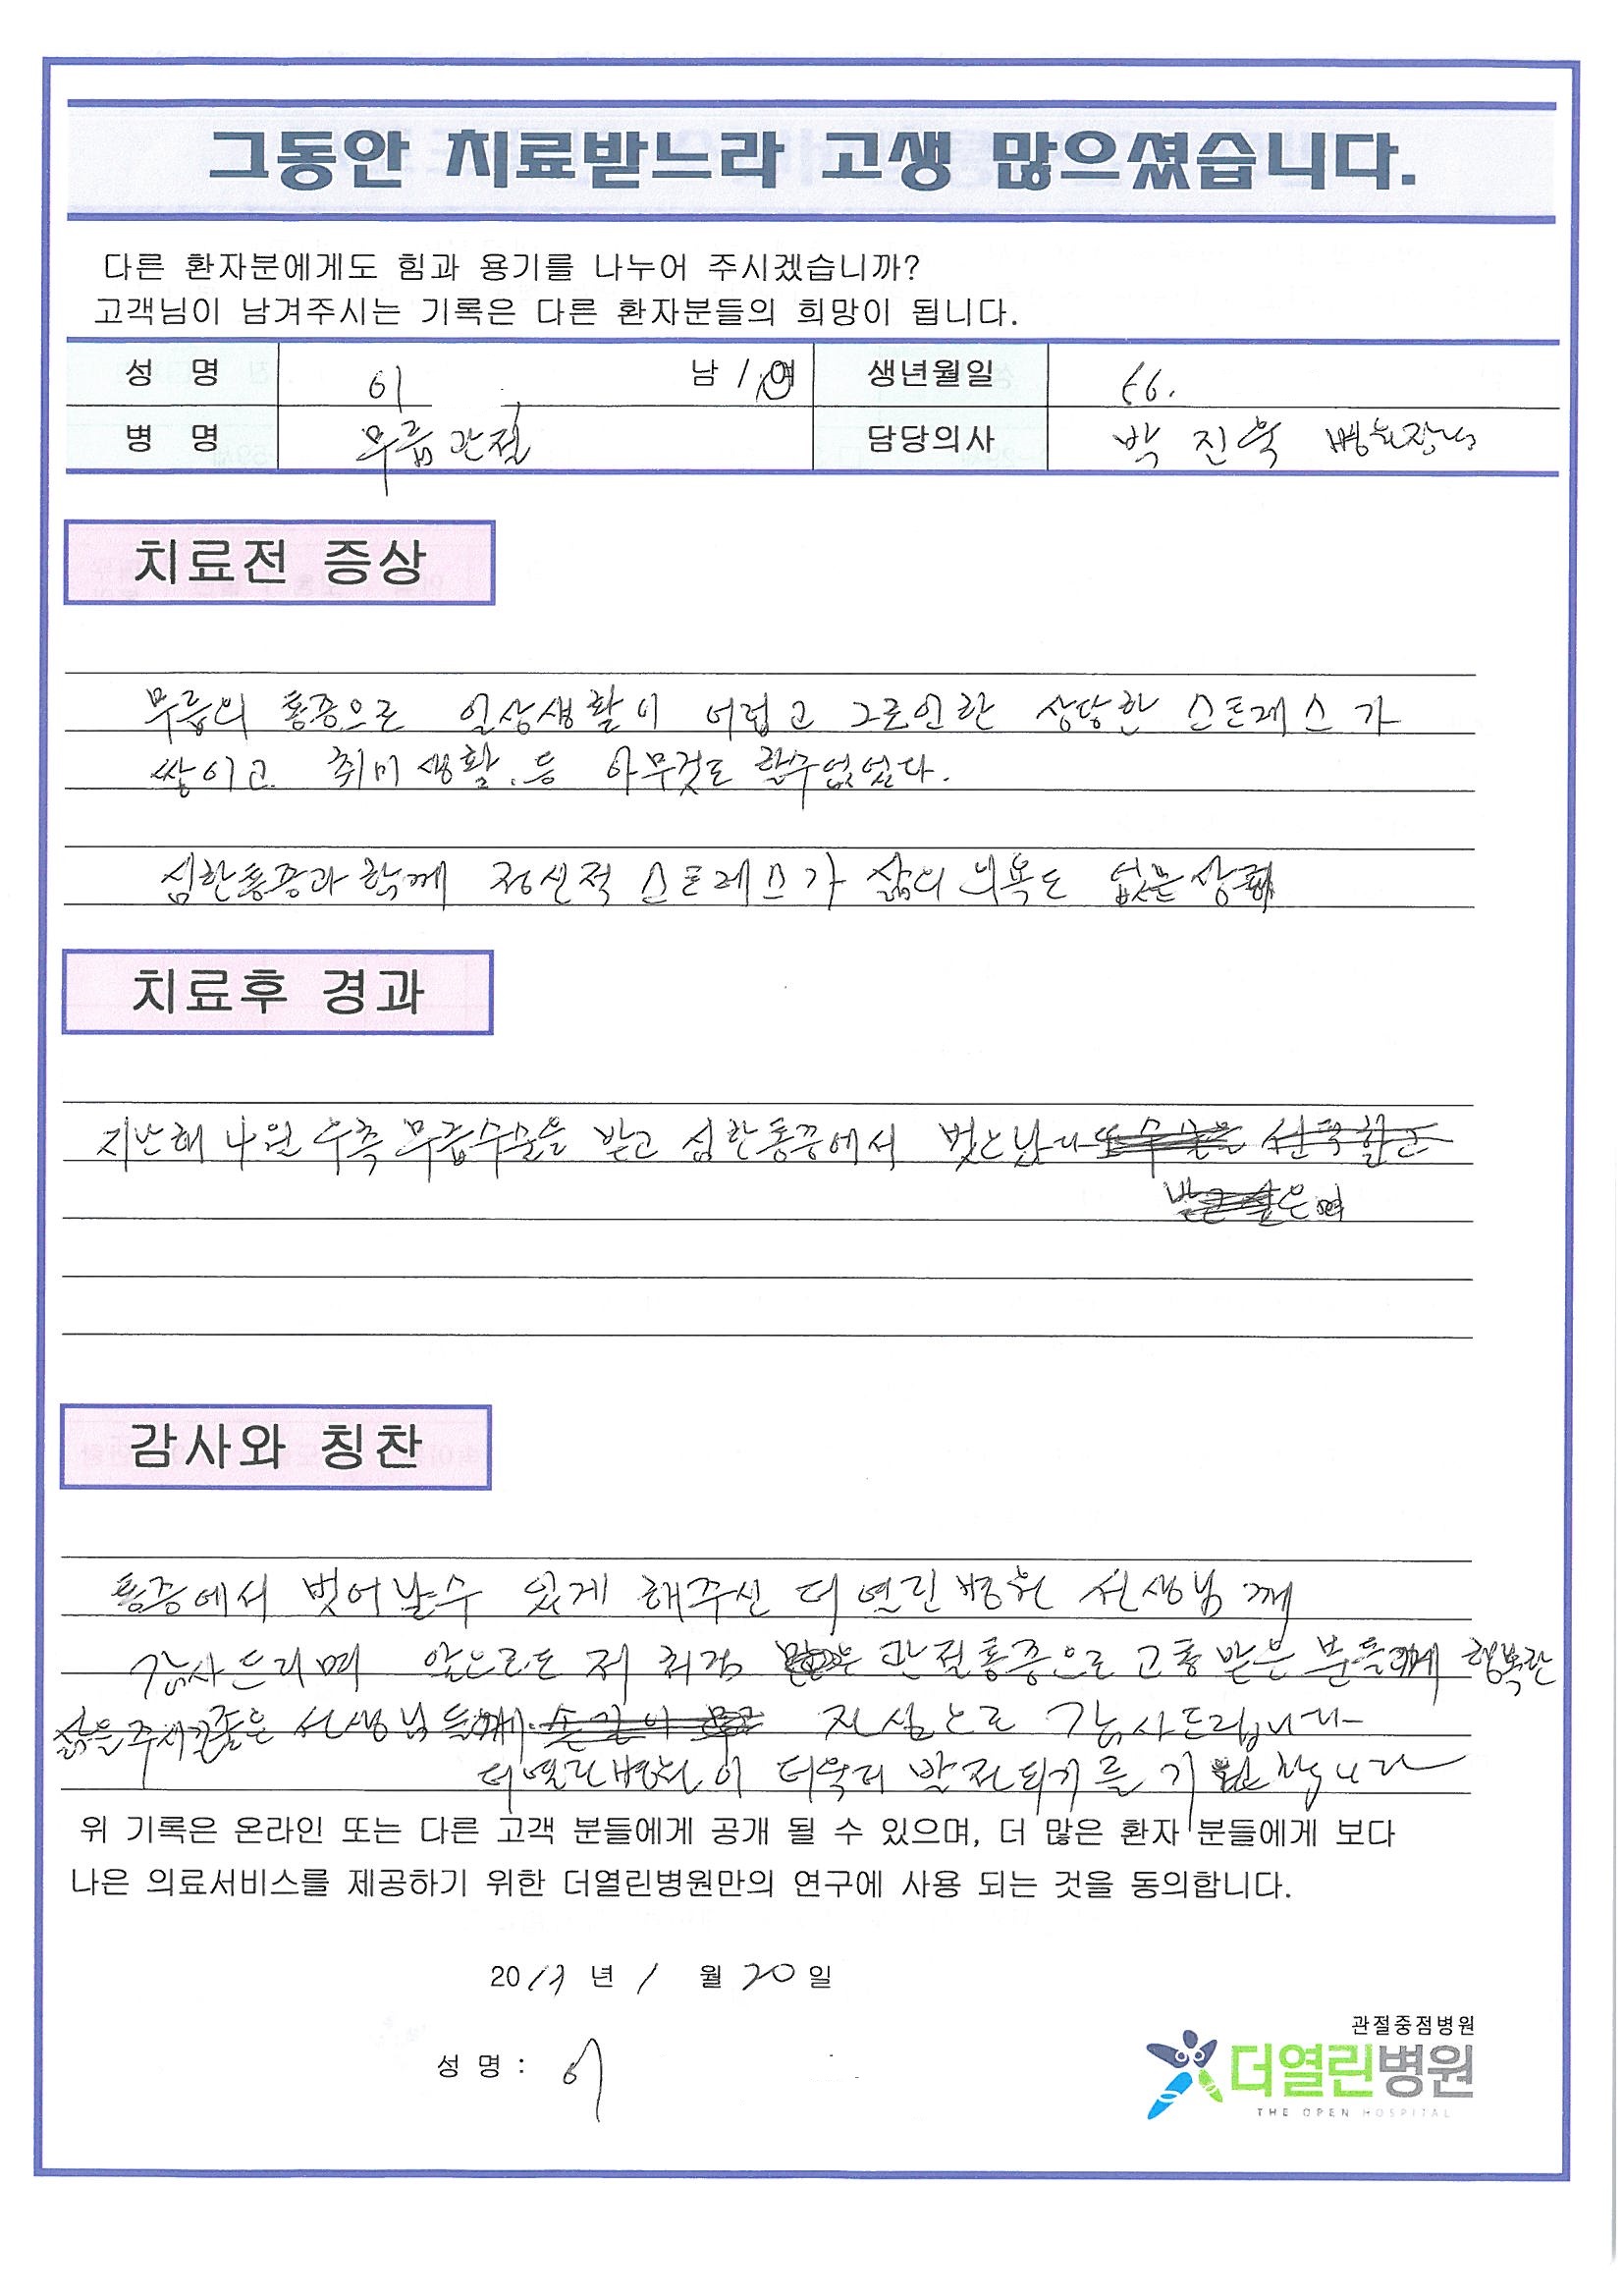 그동안 치료받느라 고생 많으셨습니다.
다른 환자분에게도 힘과 용기를 나누어 주시겠습니까?
고객님이 남겨주시는 기록은 다른 환자분들의 희망이 됩니다.
성 명 이 남 / 여 생년월일 66.
병 명 무릎관절 담당의사 박 진욱 병원장님
치료전 증상
무릎의 통증으로 일상생활이 어렵고 그로인한 상당한 스트레스가
쌓이고 취미생활.등 아무것도 할수없었다.
심한통증과 함께 정신적 스트레스가 삶의 의욕도 없는상태
치료후 경과
지난해 나원 우측 무릎수술을 받고 심한통증에서 벗으났다
감사와 칭찬
통증에서 벗어날수 있게 해주신 더열린병원 선생님께
감사드리며 앞으로도 저 처럼 관절통증으로 고통받은 분들께 행복한
삶을주시길 선생님들께 진심으로 감사드립니다
더열린병원이 더욱더 발전되기를 기원합니다
위 기록은 온라인 또는 다른 고객 분들에게 공개 될 수 있으며, 더 많은 환자 분들에게 보다
나은 의료서비스를 제공하기 위한 더열린병원만의 연구에 사용 되는 것을 동의합니다.
2017년 1 월 20일
성 명 : 이
관절중점병원
더열린병원
THE OPEN HOSPITAL